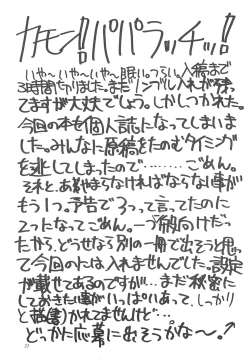 カモン!パパラッチッ!
いや〜いや〜いや〜眠い。つらい。入稿まで
3時間切りました。まだノンブル入れが残っ
てますが大丈夫でしょう。しかしつかれた。
今回の本も個人誌になってしまいま
した。みんなに原稿をたのむタイミング
を逃してしまったので………ごめん。
それと、あやまらなければならない事が
もう1つ。予告で3つって言ってたのに
2つになってごめん。一つ波向けだっ
たから、どうせなら別の一冊で出そうと思っ
て今回のには入れませんでした。設定
が載せてあるのですが…まだ秘密に
しておきたい事がいっぱいあって、しっかり
と描(書)かれてませんけど…
どっかに応募に出そうかな〜。↑